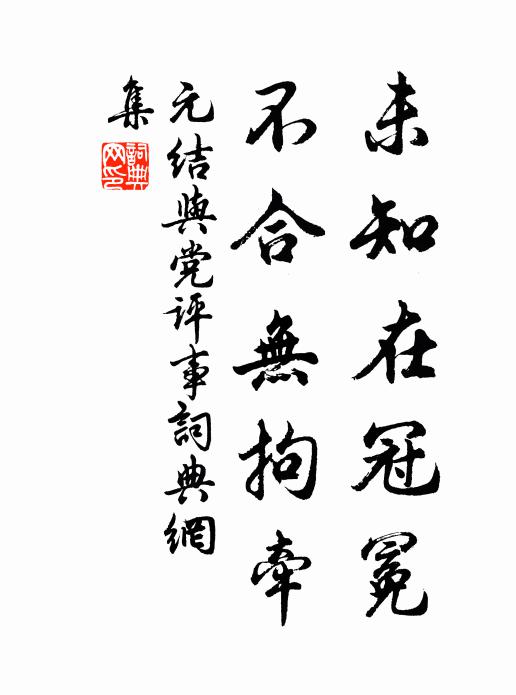 未知在冠冕
不合無拘牽
元结與党评事詞典網
集
詞典网印